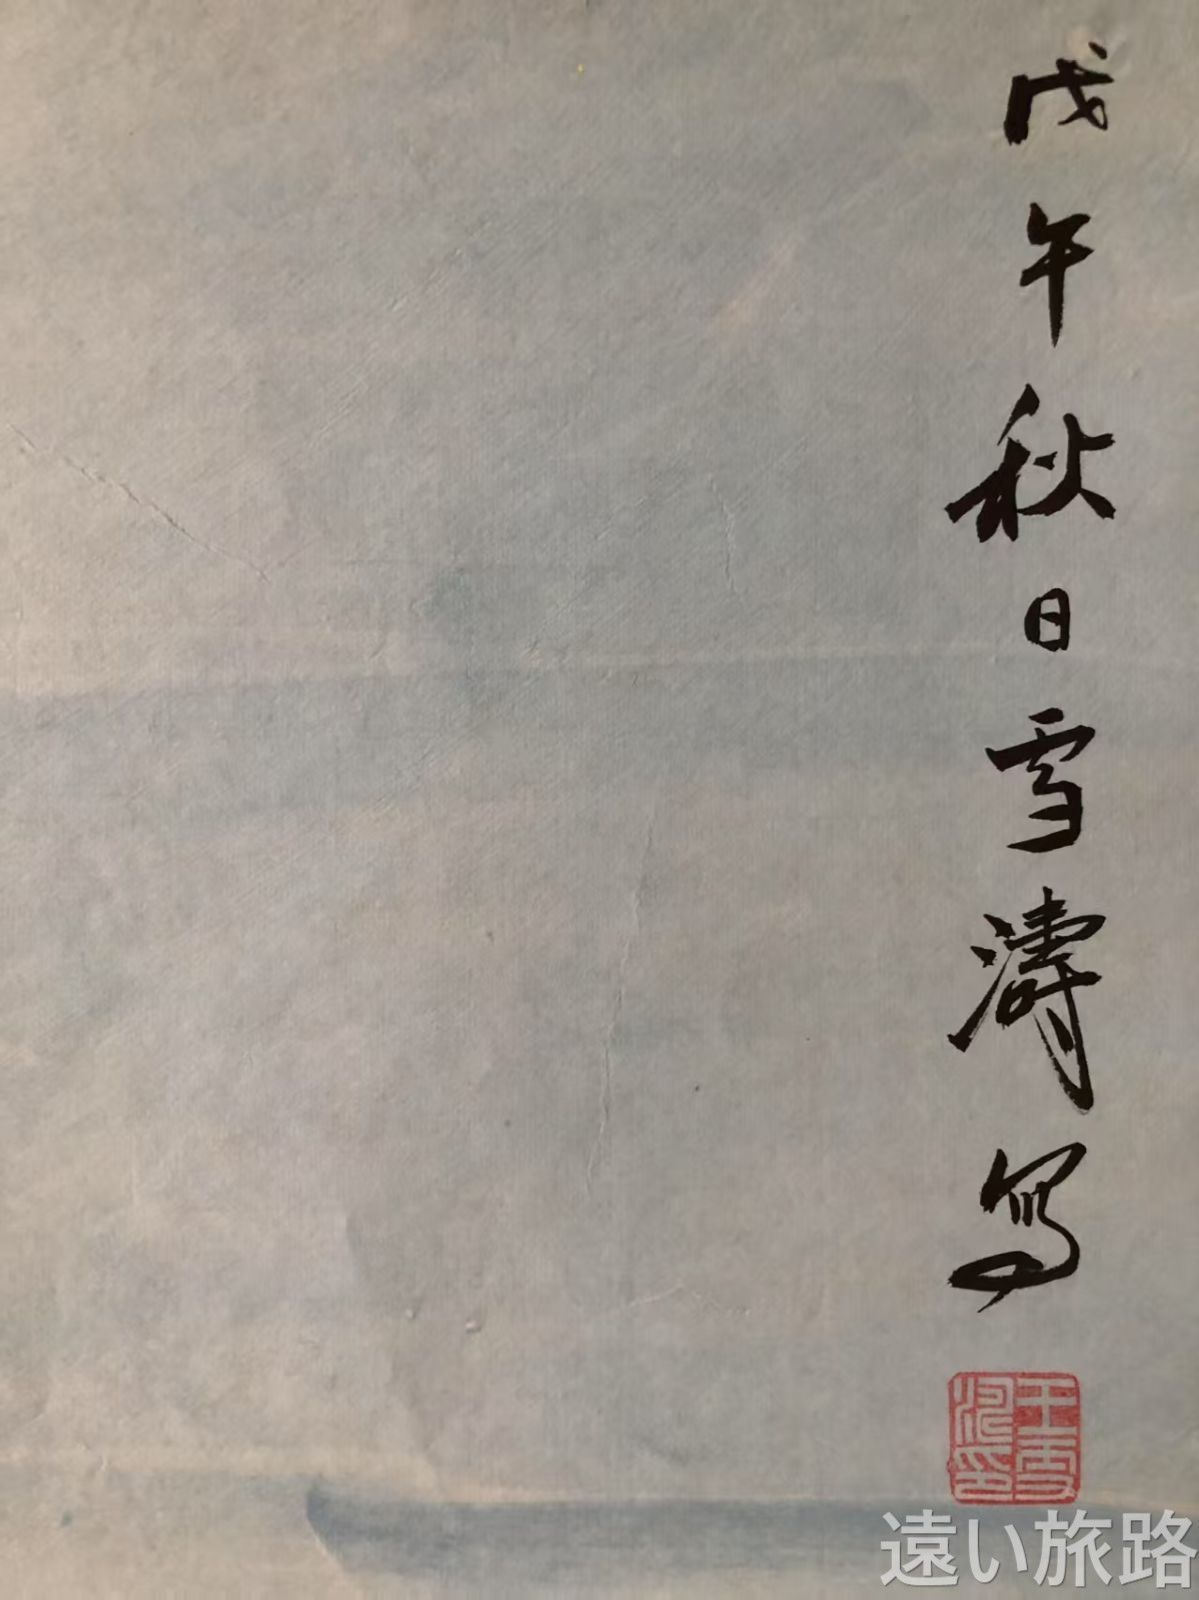 戊午秋日雪濤寫
王雪濤印
遠い旅路